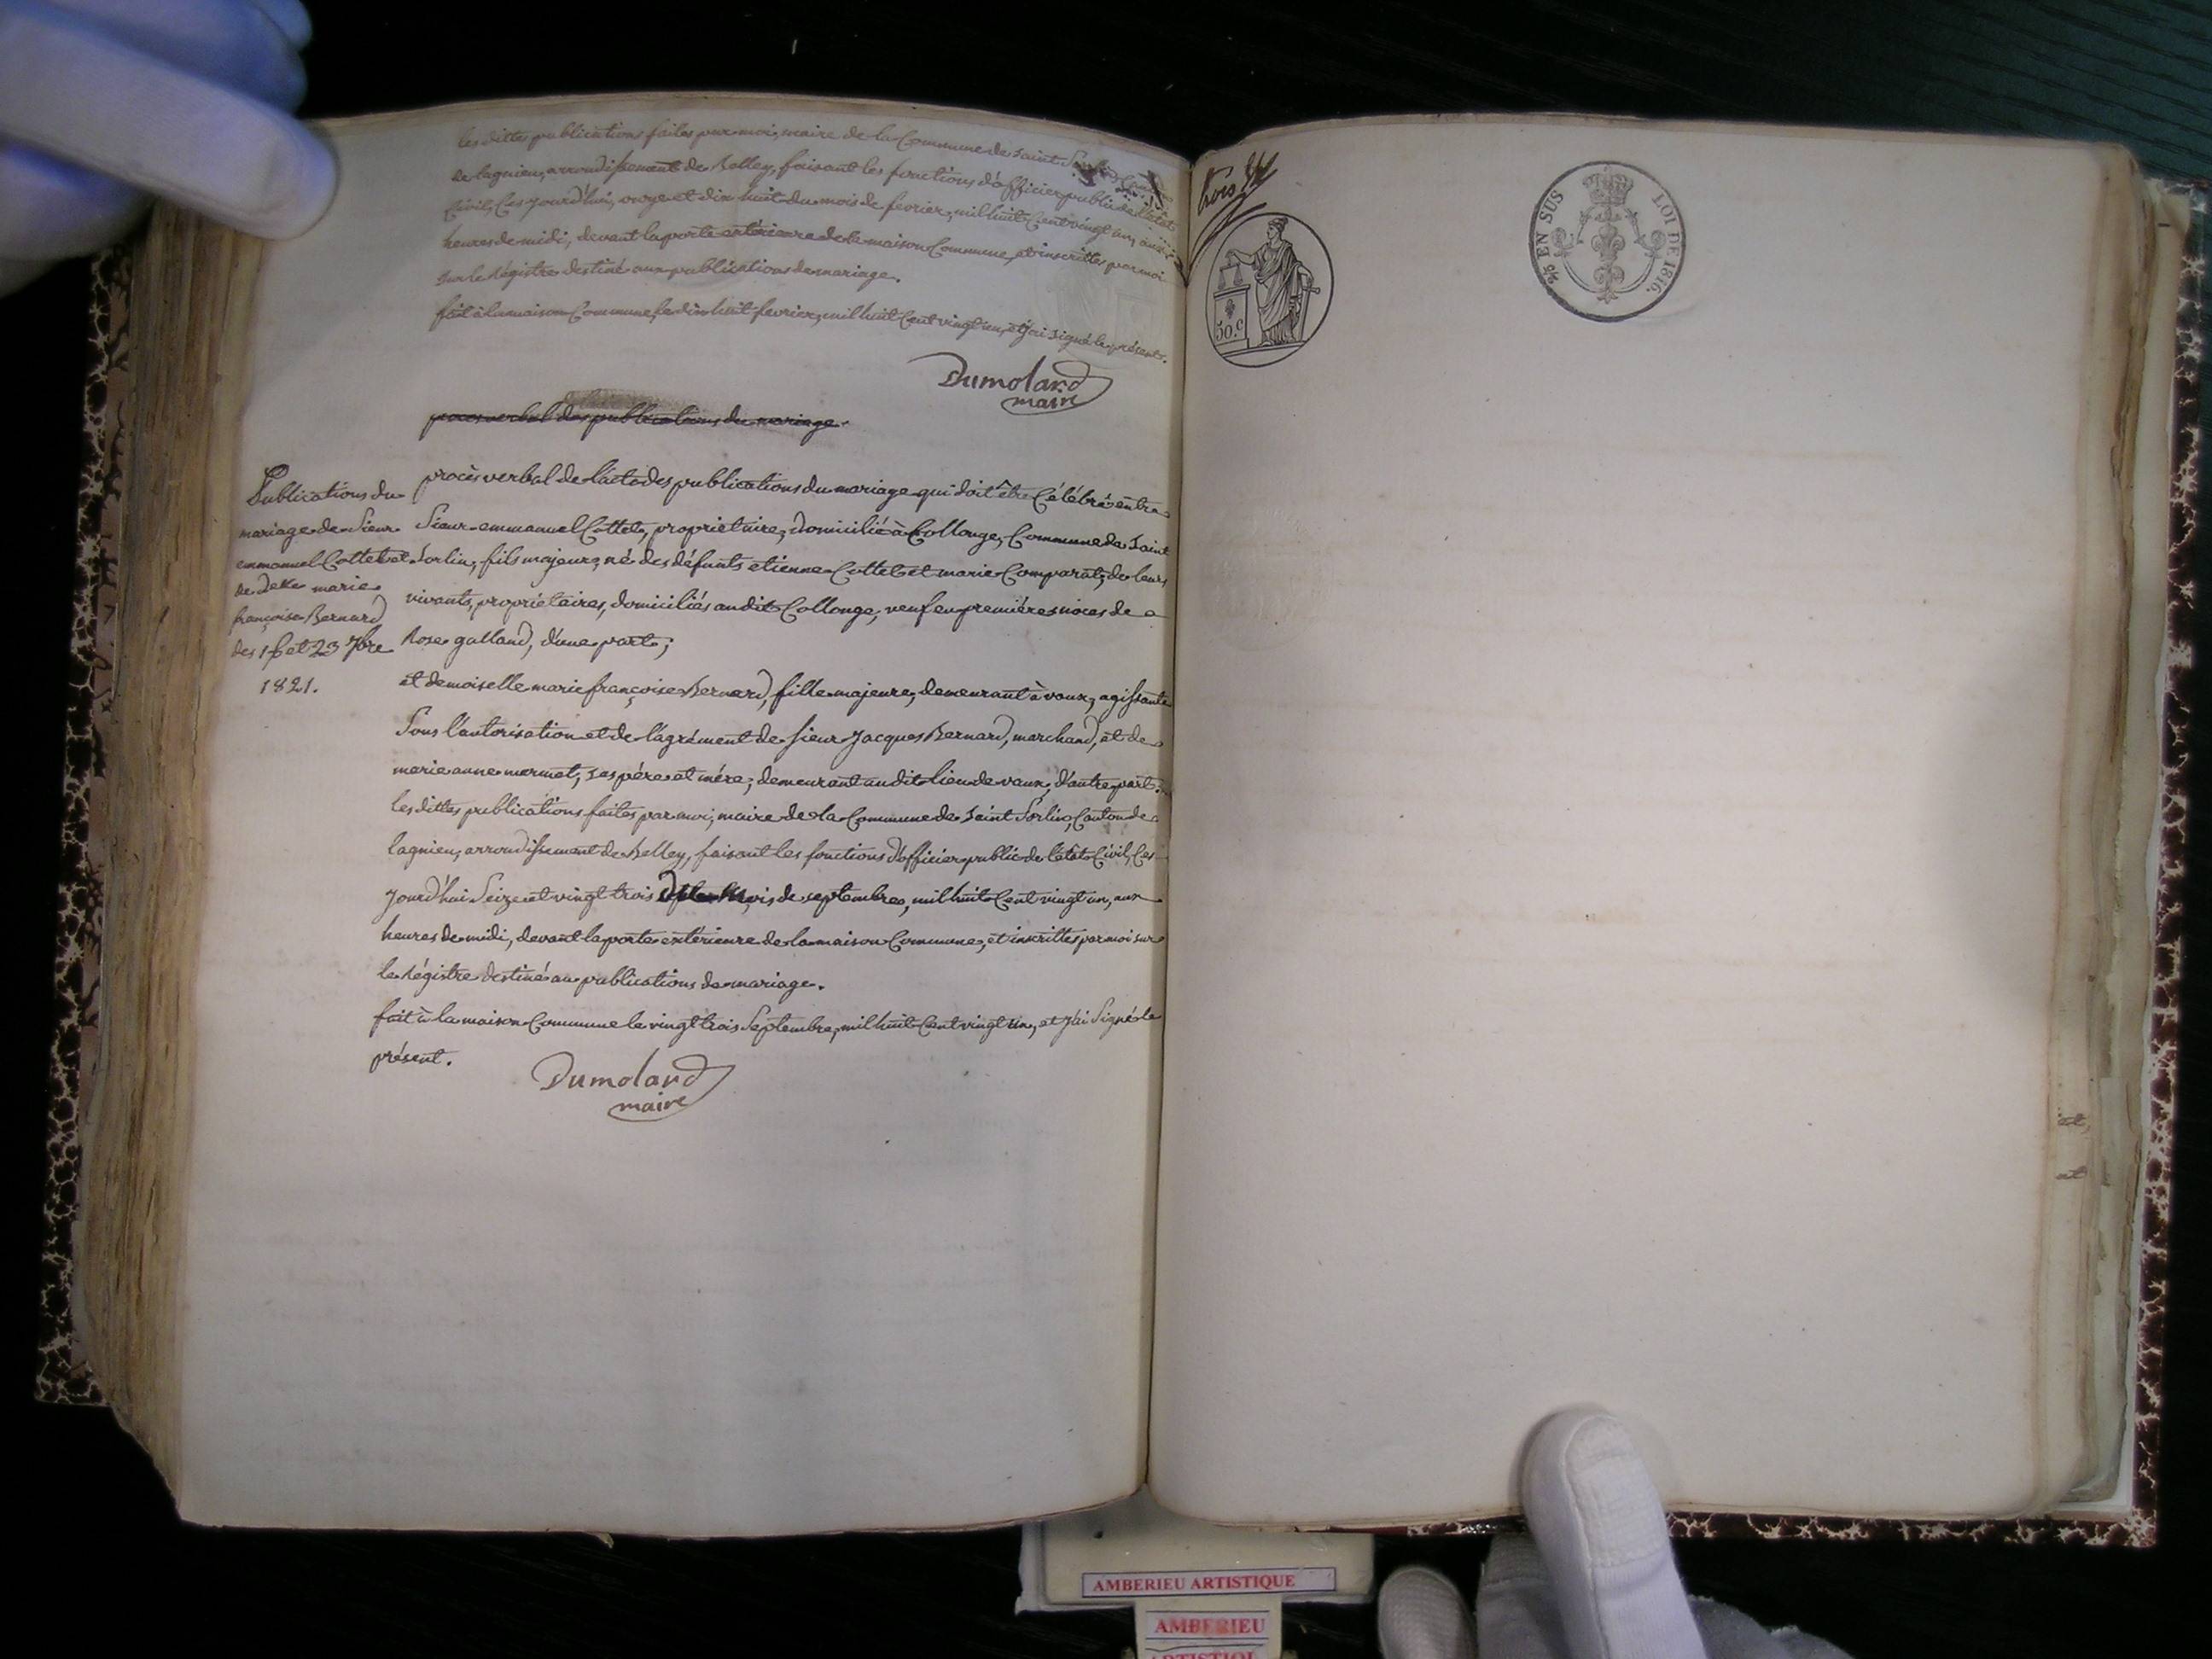 les dittes publications faites par moi, maire de la Commune de saint Sorlin, Canton
de lagnieu, arrondissement de Belley, faisant les fonctions d'officier public de l'état
Civil, Ces jourd'hui, onze et dix huit du mois de fevrier, mil huit Cent vingt un, aux
heures de midi, devant la porte extérieure de la maison Commune, et inscrittes par moi
sur le Régistre destiné aux publications de mariage.
fait à la maison Commune, le dix huit fevrier, mil huit Cent vingt un, et j'ai signé le présent.
Dumolard
maire
procès verbal des publications du mariage
Publications du
mariage de Sieur
emmanuel Cottet et
de Delle marie
françoise Bernard
des 16 et 23 7bre
1821.
procès verbal de l'acte des publications du mariage qui doit être Célébré entre
Sieur emmanuel Cottet, propriétaire, domicilié à Collonge, Commune de saint
Sorlin, fils majeur, né des défunts etienne Cottet et marie Comparat, de leurs
vivants, propriétaires, domiciliés au dit Collonge, veuf en premières noces de
Rose galland, d'une part;
et demoiselle marie françoise Bernard, fille majeure, demeurant à vaux, agissante
sous l'autorisation et de l'agrément de sieur Jacques Bernard, marchand, et de
marie anne mermet, ses père et mére, demeurant au dit lieu de vaux, d'autre part.
les dittes publications faites par moi, maire de la Commune de saint Sorlin, Canton de
lagnieu, arrondissement de Belley, faisant les fonctions d'officier public de l'état Civil, Ces
jourd'hui Seize et vingt trois mois de septembre, mil huit Cent vingt un, aux
heures de midi, devant la porte extérieure de la maison Commune, et inscrittes par moi sur
le Régistre destiné au publications de mariage.
fait à la maison Commune le vingt trois Septembre, mil huit Cent vingt un, et j'ai Signé le
présent.
Dumolard
maire
trois
50.c
2/5 EN SUS
LOI DE 1816.
AMBERIEU ARTISTIQUE
AMBERIEU
ARTISTIQUE